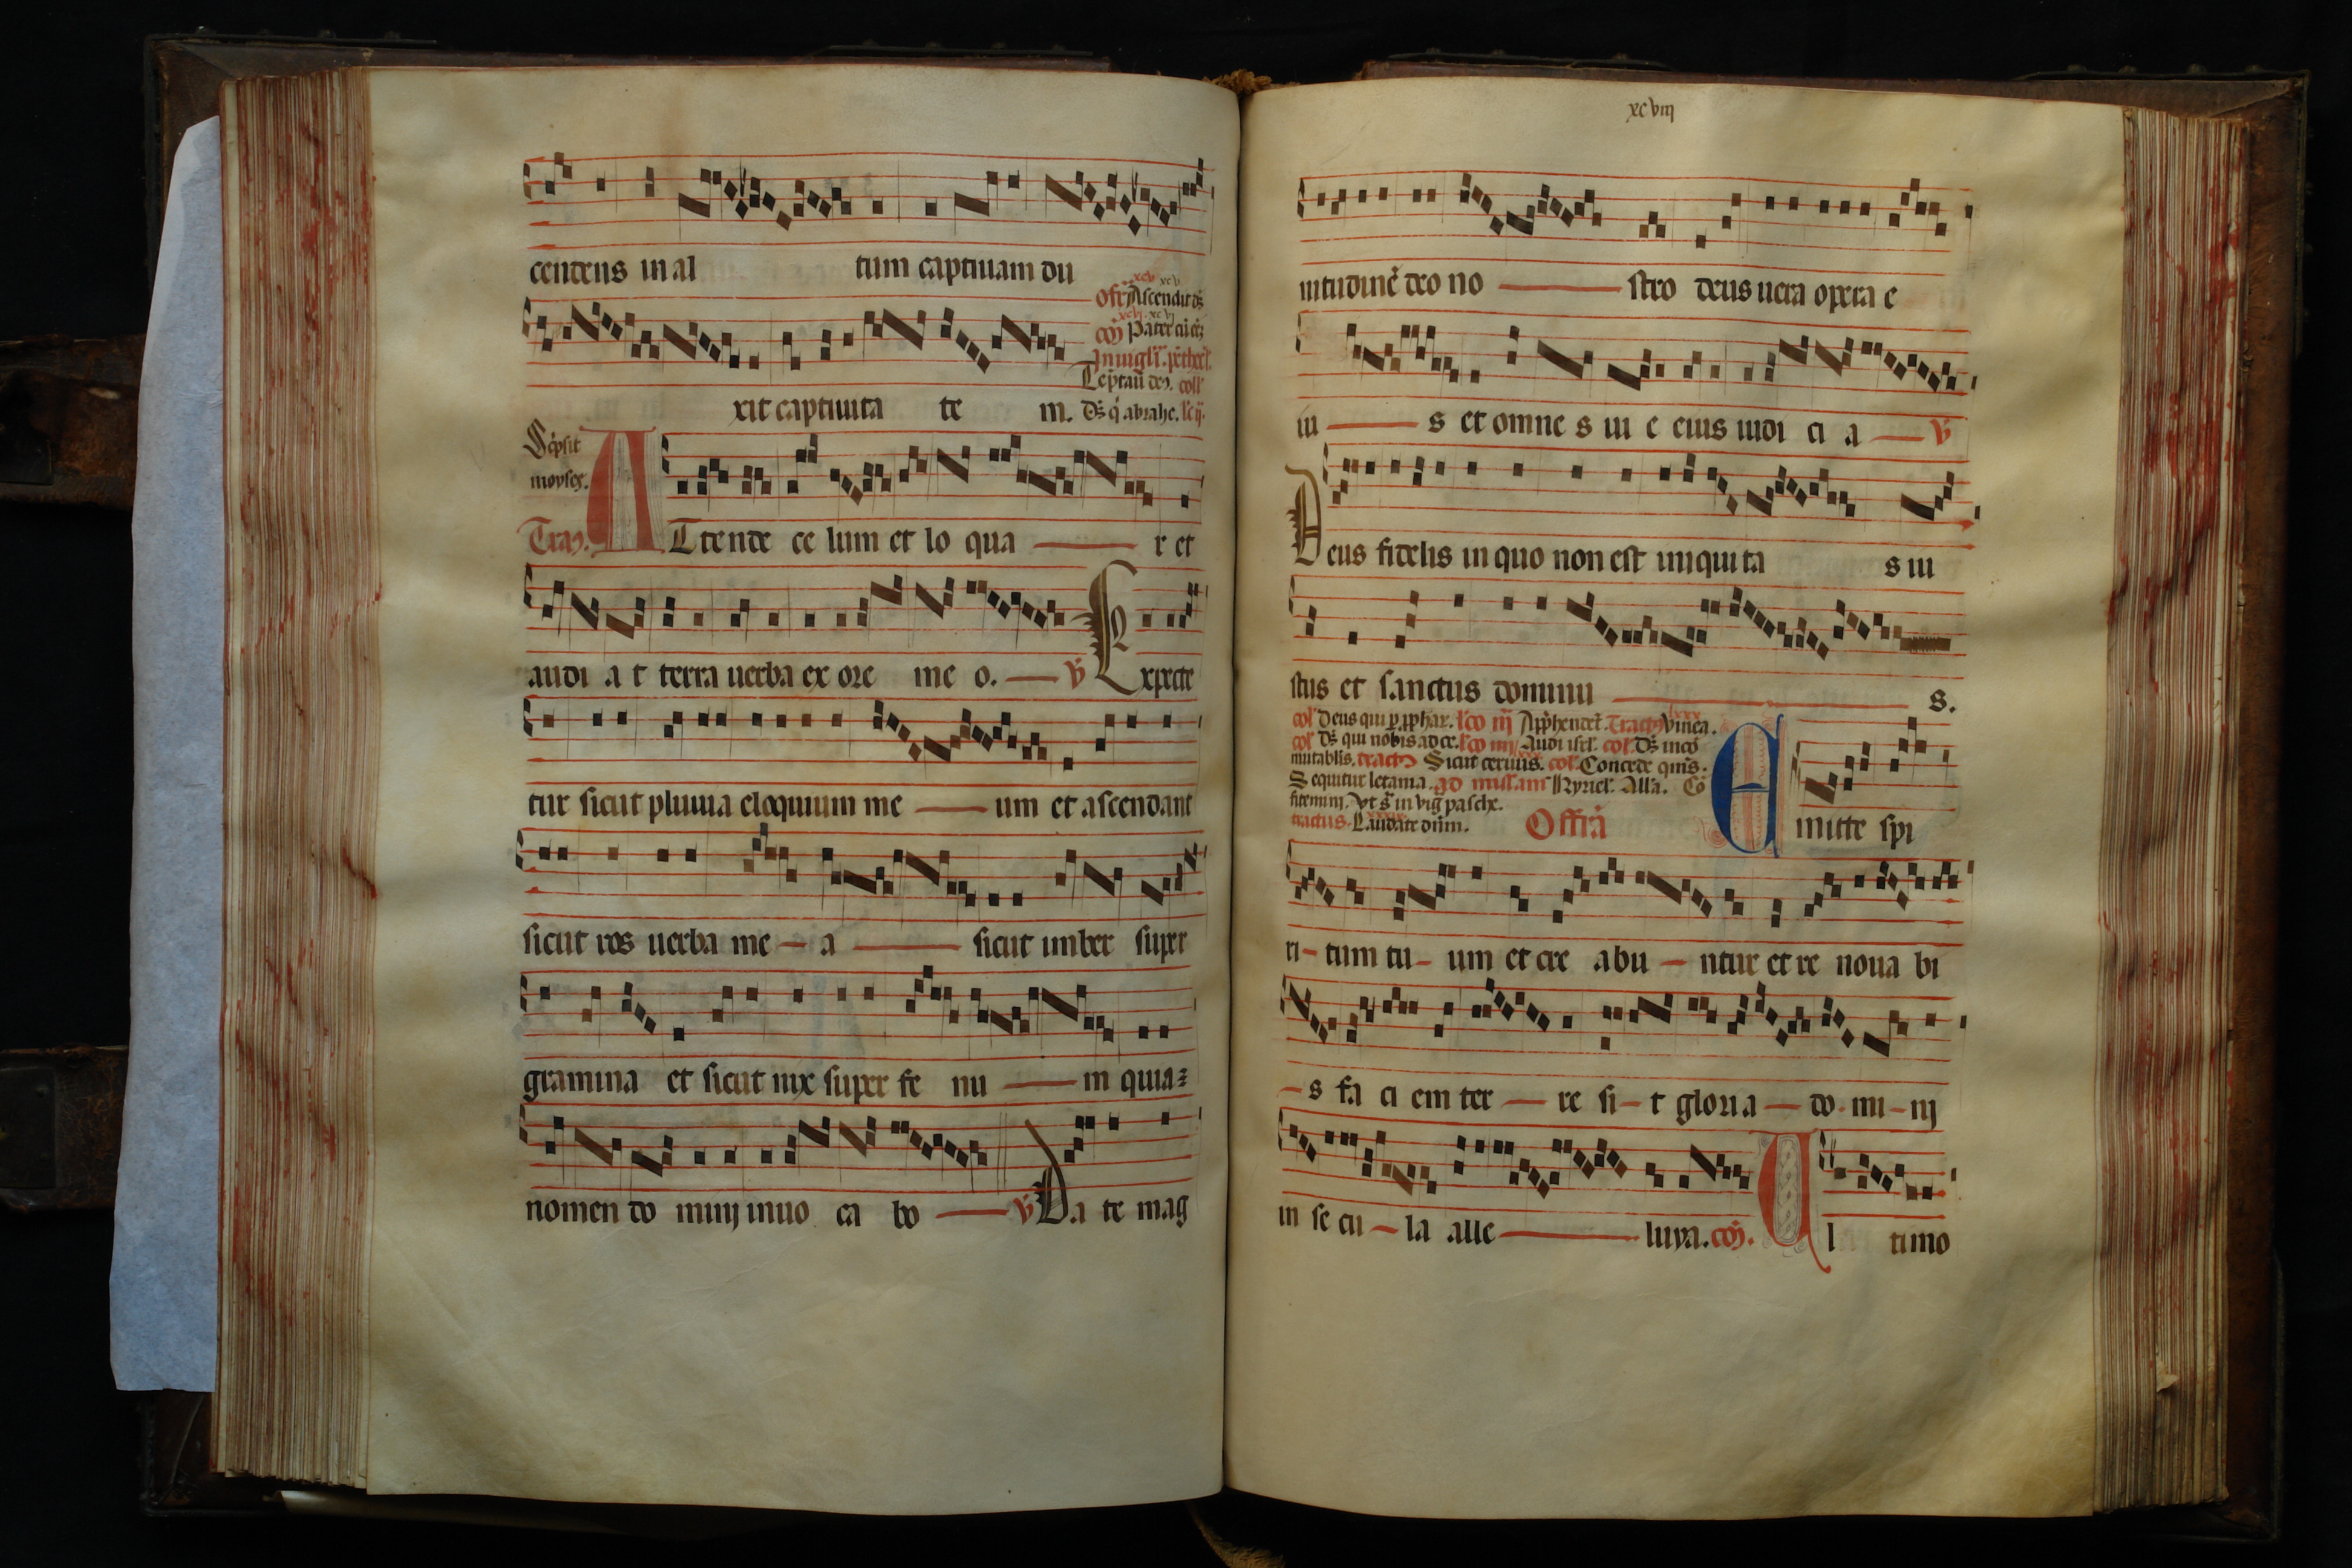 cendens in al tum captiuam du
ofr̄ Ascendit ds̄
xit captiuita te m.
Scͥpsit
moyses.
Trac̄. Attende ce lum et lo qua r et
audi a t terra uerba ex ore me o. v̄ Expecte
tur sicut pluuia eloquium me um et ascendant
sicut ros uerba me a sicut imber super
gramina et sicut nix super fe nu m quia
nomen do minij inuo ca bo v̄ Da te mag
xcviij
nitudinē deo no stro deus uera opera e
iu s et omne s ui e eius iudi ci a v̄
Deus fidelis in quo non est iniquita s iu
stus et sanctus dominu s.
col̄ Deus qui p̱ ꝓphar. l̄co iij App̄hendet. Tractꝰ vinea.
col̄ Ds̄ qui nobis ad ce. l̄co iiij Audi isrl̄. col̄. Ds̄ incō
mutabilis. tractꝰ Sicut ceruus. col̄. Concede qm̄s.
Sequitur letania. ad missam Kyriel̄. All̄a. Cō
fitemini. vt s̄ in viḡ pasche.
tractus. Laudate dūm. Offrā Emitte spi
ri tum tu um et cre abu ntur et re noua bi
s fa ci em ter re si t gloria do mi nij
in se cu la alle luya. cō. Ul timo